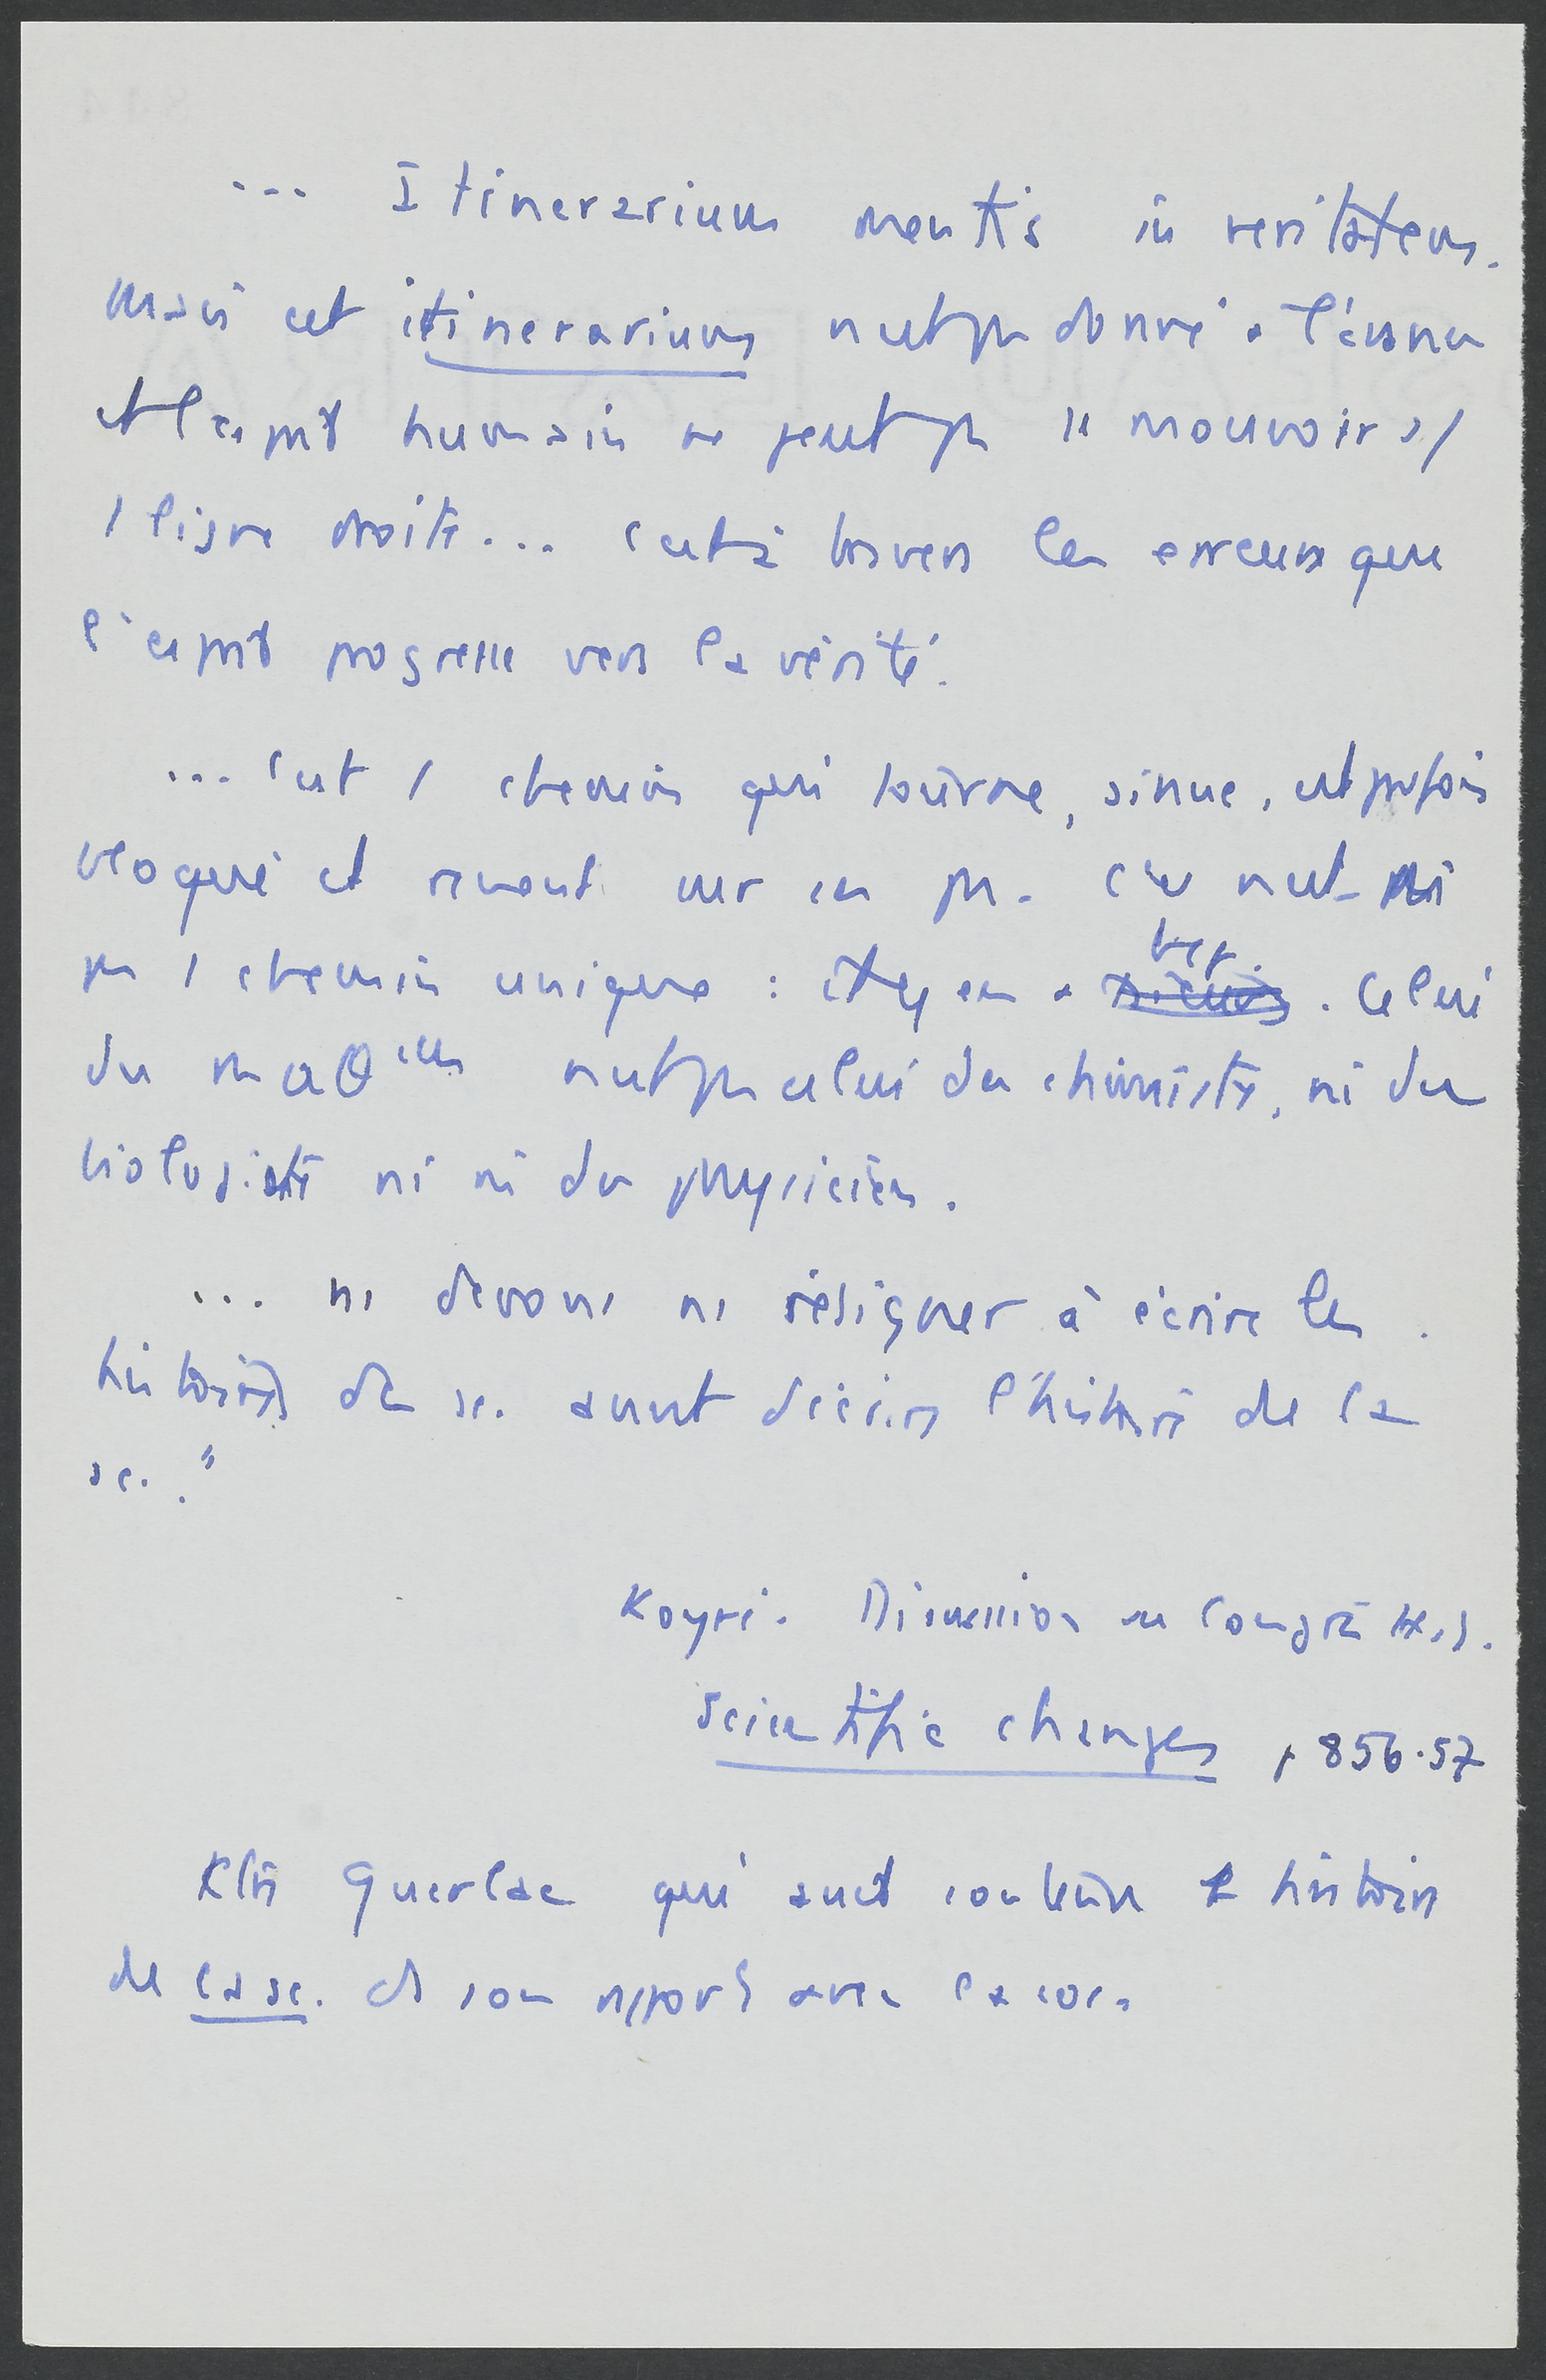 ... Itinerarium mentis in veritatem.
Mais cet itinerarium n'est pas donné à l'avance
et l'esprit humain ne peut pas se mouvoir s/
/ ligne droite... C'est à travers les erreurs que
l'esprit progresse vers la vérité.
... C'est / chemin qui tourne, sinue, est parfois
bloqué et revient sur ses pas. Ce n'est ni
pas / chemin unique : il y en a bcp. Celui
du maθicien n'est pas celui du chimiste, ni du
biologiste ni ni du physicien.
... ns devons ns résigner à écrire les
histoires des sc. avant d'écrire l'histoire de la
sc."
Koyré. Discussion au Congrès
Scientific changes, p 856-57
Guerlac qui avait soutenu histoire
de la sc. et son rapport avec la soc.